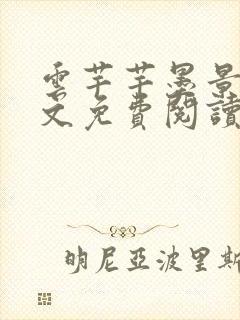 雲芊芊墨景
文免費閱讀
明尼亞波里斯